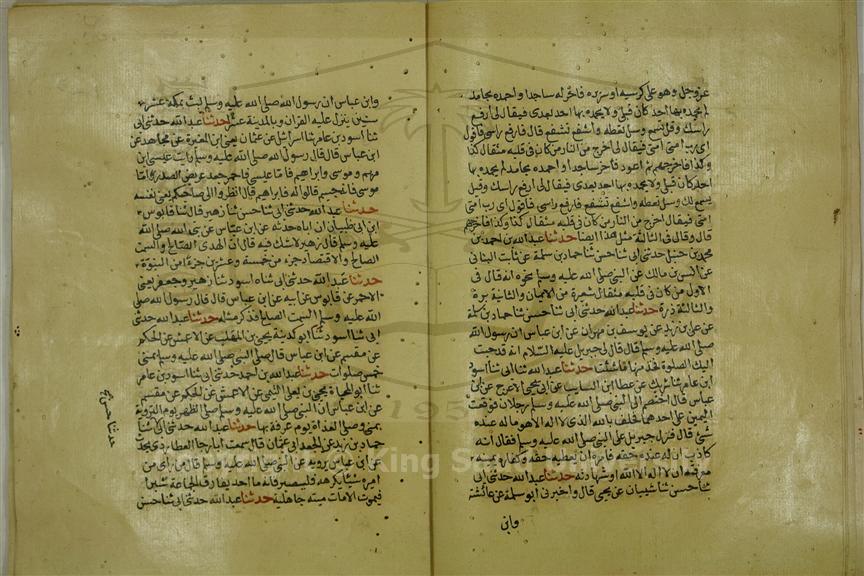 عز وجل وهو على كرسيه او سريره فاخر له ساجدا واحمده بمحامد
لم يحمده بها احد كان قبلي ولا يحمده بها احد بعدي فيقال لي ارفع
راسك وقل تسمع وسل تعطه واشفع تشفع قال فارفع راسي فاقول
اي رب امتي امتي فيقال لي اخرج من النار من كان في قلبه مثقال كذا
وكذا فاخرجهم ثم اعود فاخر ساجدا واحمده بمحامد لم يحمده بها
احد كان قبلي ولا يحمده بها احد بعدي فيقال لي ارفع راسك وقل
يسمع لك وسل تعطه واشفع تشفع فارفع راسي فاقول اي رب امتي
امتي فيقال اخرج من النار من كان في قلبه مثقال كذا وكذا فاخرجهم
قال وقال في الثالثة مثل هذا ايضا حدثنا عبد الله بن احمد بن
محمد بن حنبل حدثني ابي ثنا حسن ثنا حماد بن سلمة عن ثابت البناني
عن انس بن مالك عن النبي صلى الله عليه وسلم بنحوه انه قال في
الاول من كان في قلبه مثقال شعيرة من الايمان والثانية برة
والثالثة ذرة حدثنا عبد الله حدثني ابي ثنا حسن ثنا حماد بن سلمة
عن علي بن زيد عن يوسف بن مهران عن ابن عباس ان رسول الله
صلى الله عليه وسلم قال قال لي جبريل عليه السلام انه قد حببت
اليك الصلوة فخذ منها ما شئت حدثنا عبد الله ثنا ابي ثنا اسود
ابن عامر ثنا شريك عن عطا ابن السايب عن ابي يحيى الاعرج عن ابن
عباس قال اختصم الى النبي صلى الله عليه وسلم رجلان فوقعت
اليمين على احدهما فحلف بالله الذي لا اله الا هو ما له عنده
شئ قال فنزل جبريل على النبي صلى الله عليه وسلم فقال انه
كاذب ان له عنده حقه فامره ان يعطيه حقه وكفارة يمينه
معرفته ان لا اله الا الله او شهادته حدثنا عبد الله حدثني ابي
ثنا حسن ثنا شيبان عن يحيى قال واخبرني ابو سلمة عن عائشة
وابن
وابن عباس ان رسول الله صلى الله عليه وسلم لبث بمكة عشر
سنين ينزل عليه القران وبالمدينة عشرا حدثنا عبد الله حدثني ابي
ثنا اسود بن عامر ثنا اسرائيل عن عثمان يعني ابن المغيرة عن مجاهد عن
ابن عباس قال قال رسول الله صلى الله عليه وسلم رايت عيسى ابن
مريم وموسى وابراهيم فاما عيسى فاحمر جعد عريض الصدر واما
موسى فانه جسيم قالوا له فابراهيم قال انظروا الى صاحبكم يعني نفسه
حدثنا عبد الله حدثني ابي ثنا حسن ثنا زهير قال ثنا قابوس
ابن ابي ظبيان ان اباه حدثه عن ابن عباس عن نبي الله صلى الله
عليه وسلم قال زهير لا شك فيه قال ان الهدي الصالح والسمت
الصالح والاقتصاد جزء من خمسة وعشرين جزءا من النبوة
حدثنا عبد الله حدثني ابي ثناه اسود ثنا زهير وجعفر يعني
الاحمر عن قابوس عن ابيه عن ابن عباس قال قال رسول الله صلى
الله عليه وسلم السمت الصالح فذكر مثله حدثنا عبد الله حدثني
ابي ثنا اسود ثنا ابو كدينة يحيى بن المهلب عن الاعمش عن الحكم
عن مقسم عن ابن عباس قال صلى النبي صلى الله عليه وسلم بمنى
خمس صلوات حدثنا عبد الله بن احمد حدثني ابي ثنا اسود بن عامر
ثنا ابو المحياة يحيى بن يعلى التيمي عن الاعمش عن الحكم عن مقسم
عن ابن عباس ان النبي صلى الله عليه وسلم صلى الظهر يوم التروية
بمنى وصلى الغداة يوم عرفة بها حدثنا عبد الله حدثني ابي ثنا
حماد بن زيد عن الجعد ابي عثمان قال سمعت ابا رجا العطاردي يحدث
عن ابن عباس يرويه عن النبي صلى الله عليه وسلم قال من راى من
اميره شيئا يكرهه فليصبر فانه ما احد يفارق الجماعة شبرا
فيموت الا مات ميتة جاهلية حدثنا عبد الله حدثني ابي ثنا حسن
حدثنا حسن صح
King S
195